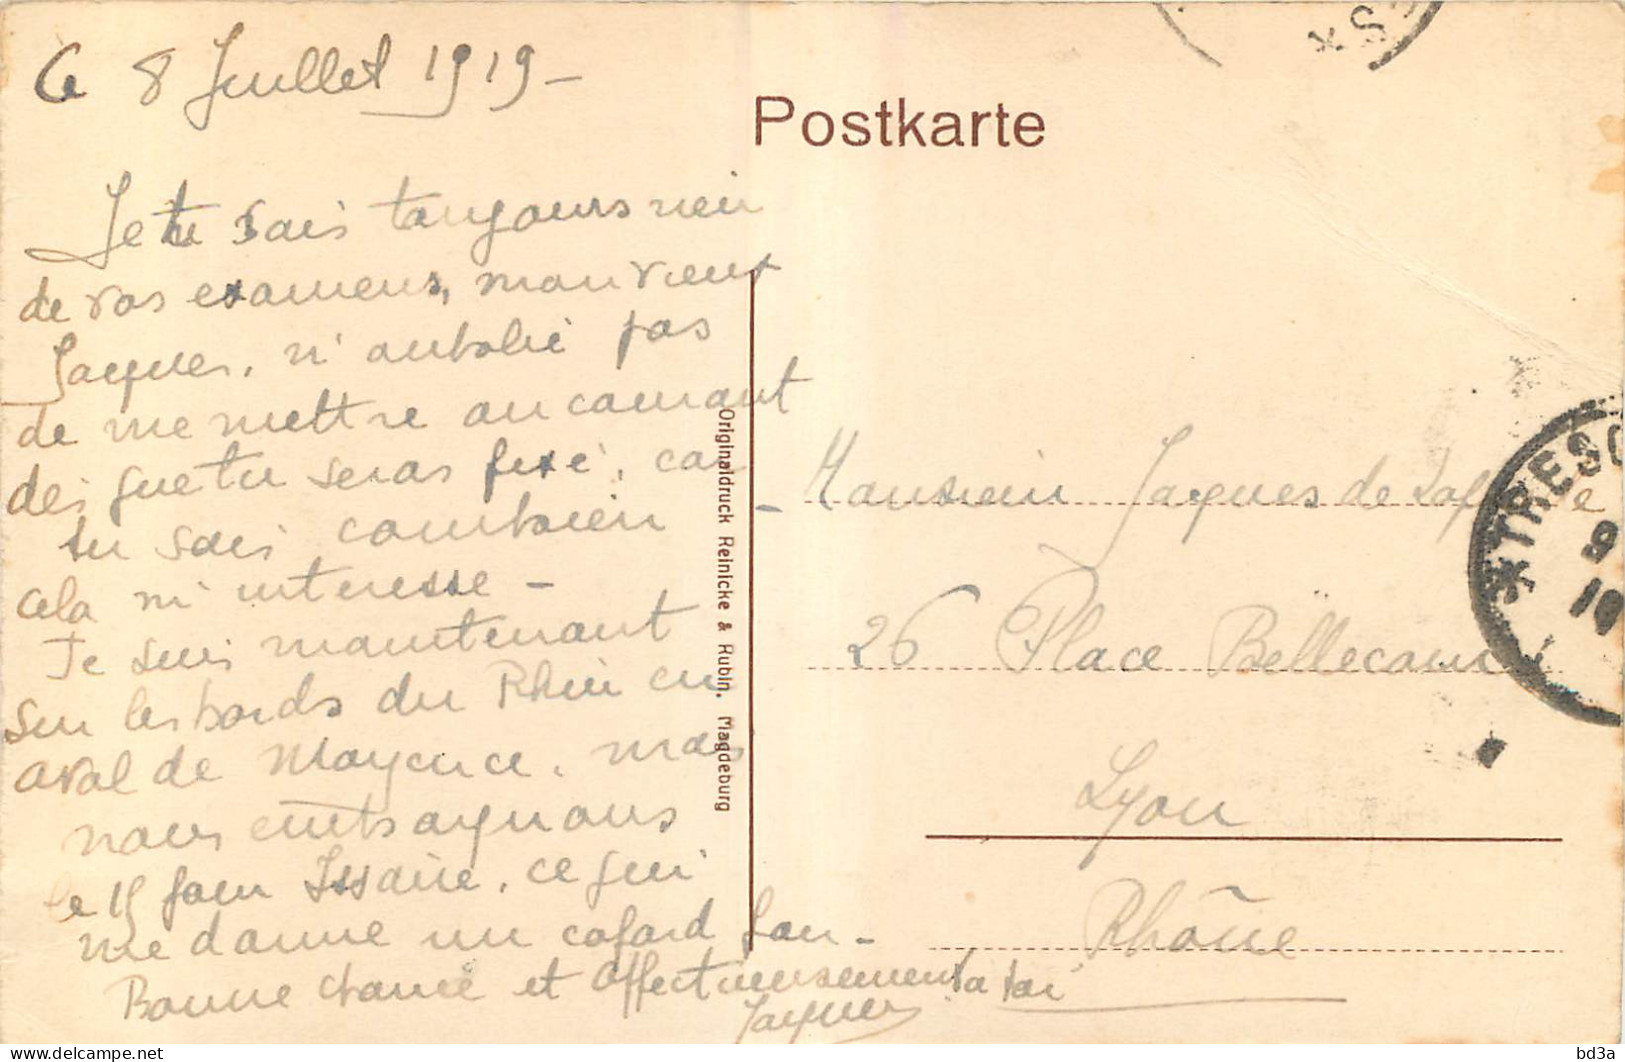 Ce 8 Juillet 1919 –
Postkarte
Je tu sais toujours rien
de vos examens, mon vieux
Jacques, n'oublie pas
de me mettre au courant
dès que tu seras fixé, car
tu sais combien
cela m'intéresse –
Je suis maintenant
sur les bords du Rhin en
aval de Mayence, mais
nous embarquons
le 15 pour Issoire, ce qui
me donne un cafard fou –
Bonne chance et affectueusement à toi
Jacques
Originaldruck Reinicke & Rubin, Magdeburg
Monsieur Jacques de
26 Place Bellecour
Lyon
Rhône
*TRESO
9
*S
bd3a